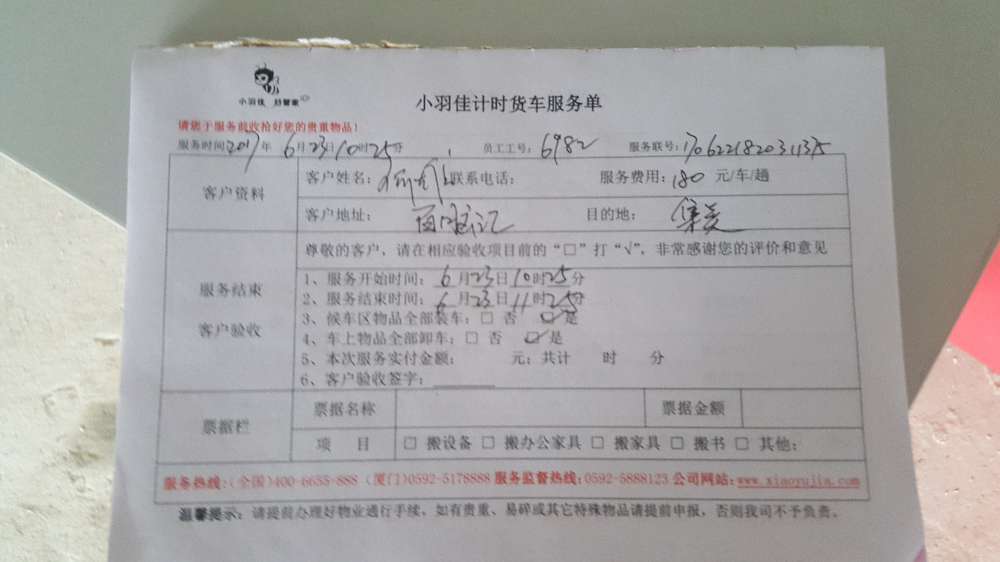 小羽佳 好管家
小羽佳计时货车服务单
请您于服务前收拾好您的贵重物品！
服务时间2017年6月23日10时25分 员工工号：6982 服务联号：
客户资料
客户姓名： 联系电话： 服务费用：180元/车/趟
客户地址： 目的地：集美
尊敬的客户，请在相应验收项目前的“□”打“√”，非常感谢您的评价和意见
服务结束
客户验收
1、服务开始时间：6月23日10时25分
2、服务结束时间：6月23日11时25分
3、候车区物品全部装车：□ 否 ☑ 是
4、车上物品全部卸车：□ 否 ☑ 是
5、本次服务实付金额： 元；共计 时 分
6、客户验收签字：
票据栏
票据名称 票据金额
项 目 □ 搬设备 □ 搬办公家具 □ 搬家具 □ 搬书 □ 其他：
服务热线：(全国)400-6655-888 (厦门)0592-5178888 服务监督热线：0592-5888123 公司网站：www.xiaoyujia.com
温馨提示：请提前办理好物业通行手续，如有贵重、易碎或其它特殊物品请提前申报，否则我司不予负责。